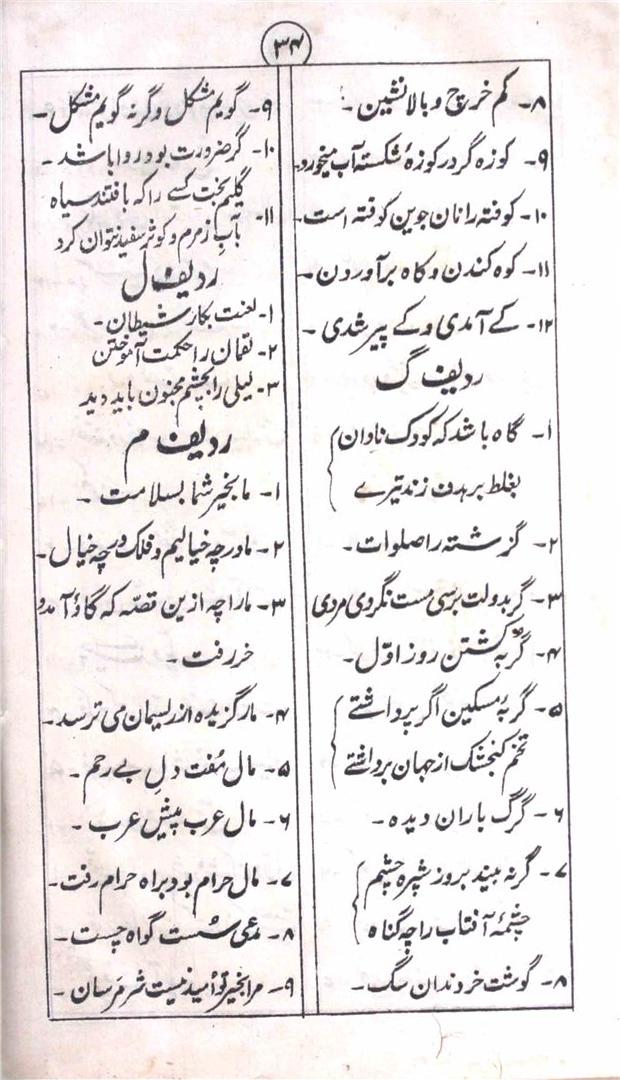 ۳۴
۸- کم خرچ و بالا نشین -
۹- کوزہ گر در کوزۂ شکستہ آب میخورد-
۱۰- کوفتہ را نان جوین کوفتہ است-
۱۱- کوہ کندن و کاہ برآوردن-
۱۲- کے آمدی و کے پیر شدی -
ردیف گ
۱- گاہ باشد کہ کودک نادان
بغلط بر ہدف زند تیرے
۲- گزشتہ را صلوات-
۳- گر بدولت برسی مست نگردی مردی
۴- گربہ کشتن روز اوّل-
۵- گربہ مسکین اگر پر داشتے
تخم کنجشک از جہان برداشتے
۶- گرگ باران دیدہ-
۷- گر نہ بیند بروز شپرہ چشم
چشمۂ آفتاب را چہ گناہ
۸- گوشت خر دندان سگ-
۹- گویم مشکل و گر نہ گویم مشکل-
۱۰- گر ضرورت بود روا باشد -
گلیم بخت کسے را کہ بافتند سیاہ
۱۱- بآب زمزم و کوثر سفید نتوان کرد
ردیف ل
۱- لعنت بکار شیطان-
۲- لقمان را حکمت آموختن
۳- لیلی را بچشم مجنون باید دید
ردیف م
۱- ما بخیر شما بسلامت -
۲- ما در چہ خیالیم و فلک در چہ خیال-
۳- ما را چہ ازین قصّہ کہ گاؤ آمد و
خر رفت -
۴- مار گزیدہ از ریسمان می ترسد-
۵- مال مُفت دلِ بے رحم-
۶- مال عرب پیش عرب -
۷- مال حرام بود براہ حرام رفت-
۸- مدعی سُست گواہ چست-
۹- مرا بخیر تو اُمید نیست شر مرسان -